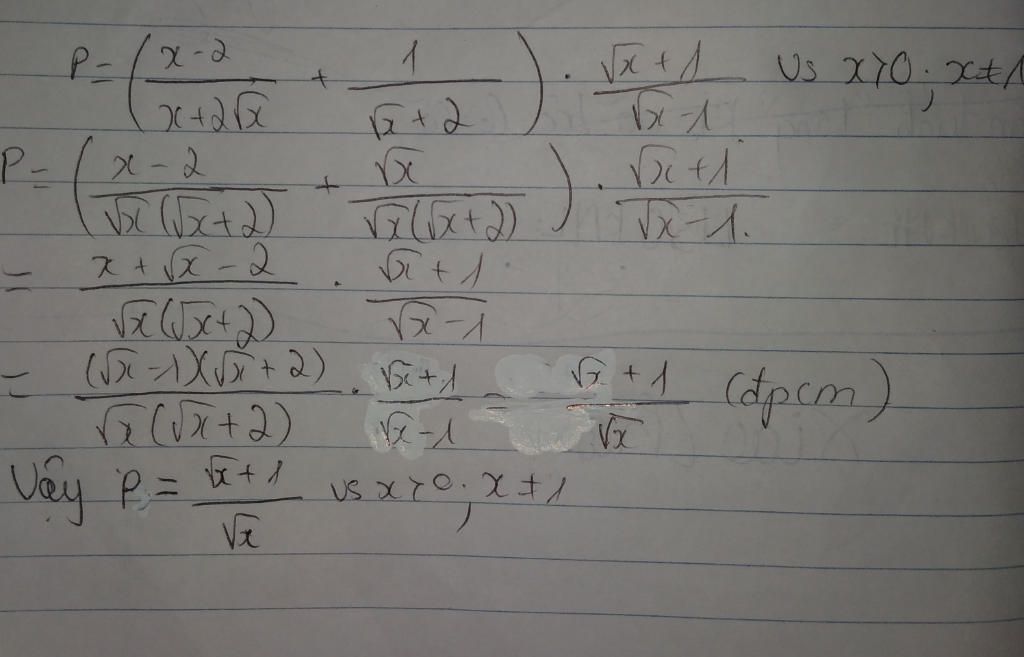 P = ( (x-2)/(x+2√x) + 1/(√x+2) ) . (√x+1)/(√x-1) vs x>0; x≠1
P = ( (x-2)/(√x(√x+2)) + √x/(√x(√x+2)) ) . (√x+1)/(√x-1).
= (x+√x-2)/(√x(√x+2)) . (√x+1)/(√x-1)
= ((√x-1)(√x+2))/(√x(√x+2)) . (√x+1)/(√x-1) = (√x+1)/√x (đpcm)
Vậy P = (√x+1)/√x vs x>0; x≠1